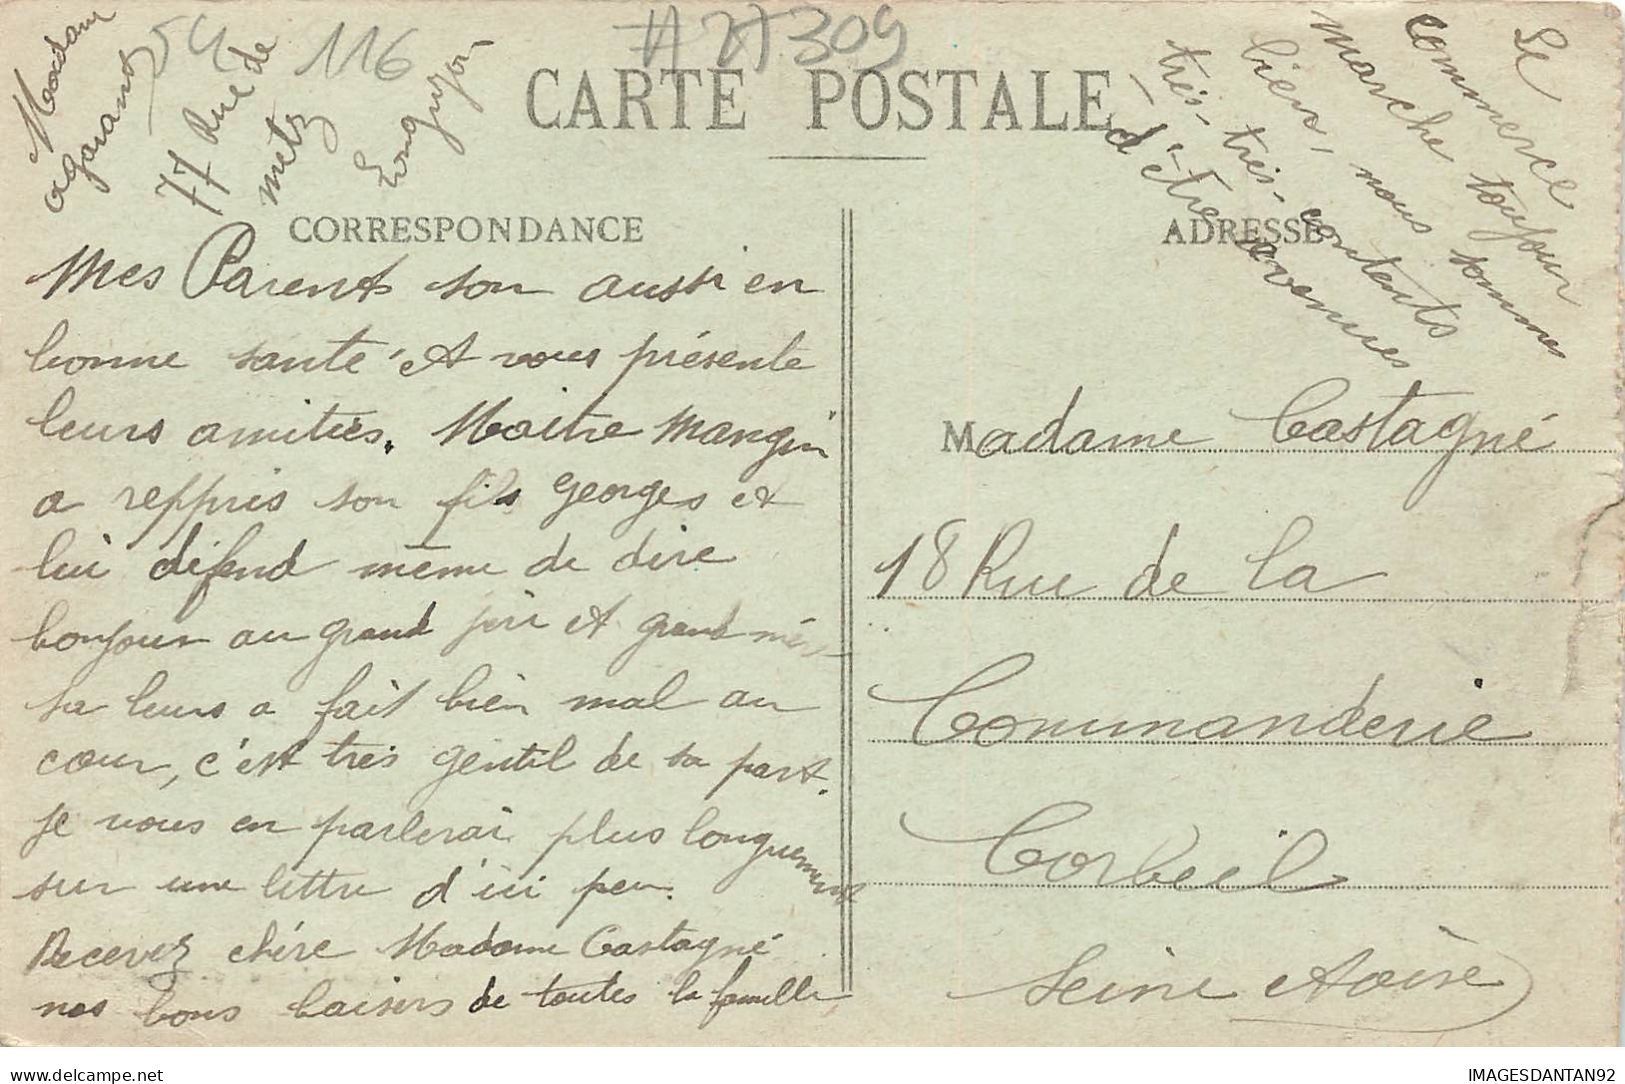 54
116
# 27309
Madam
77 Rue de
metz
Longuyon
Le
commerce
marche toujour
bien, nous sommes
très-très-contents
d'être venues
CARTE POSTALE
CORRESPONDANCE
ADRESSE
Mes Parents son aussi en
bonne santé et vous présente
leurs amitiés. Maitre Mangin
a reppris son fils Georges et
lui défend même de dire
bonjour au grand père et grand mère
sa leurs a fait bien mal au
cœur, c'est très gentil de sa part.
Je vous en parlerai plus longuement
sur une lettre d'ici peu.
Recevez chère Madame Castagné
nos bons baisers de toutes la famille
Madame Castagné
18 Rue de la
Commanderie
Corbeil
Seine et Oise
IMAGESDANTAN92
delcampe.net